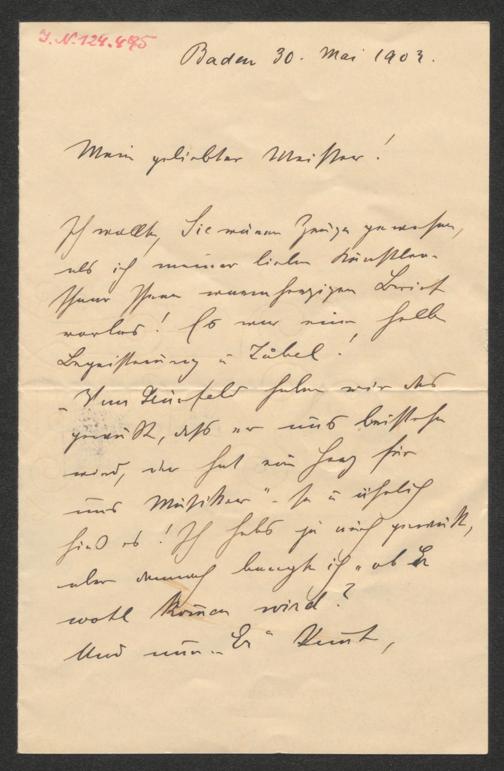 J.N. 124.495
Baden 30. Mai 1903.
Mein geliebter Meister!
Ich wollte, Sie wären Zeuge gewesen,
als ich meiner lieben Künstler-
schaar Ihren warmherzigen Bericht
vorlas! Es war eine helle
Begeisterung u Jubel!
"Vom haben wir das
gewußt, daß er uns beistehen
wird, der hat ein Herz für
uns Musiker" - so u ähnlich
hieß es! Ich habs ja auch gewußt,
aber dennoch bangte ich "ob Er
wohl kom̄en wird?
Und nun "Er" kom̄t,